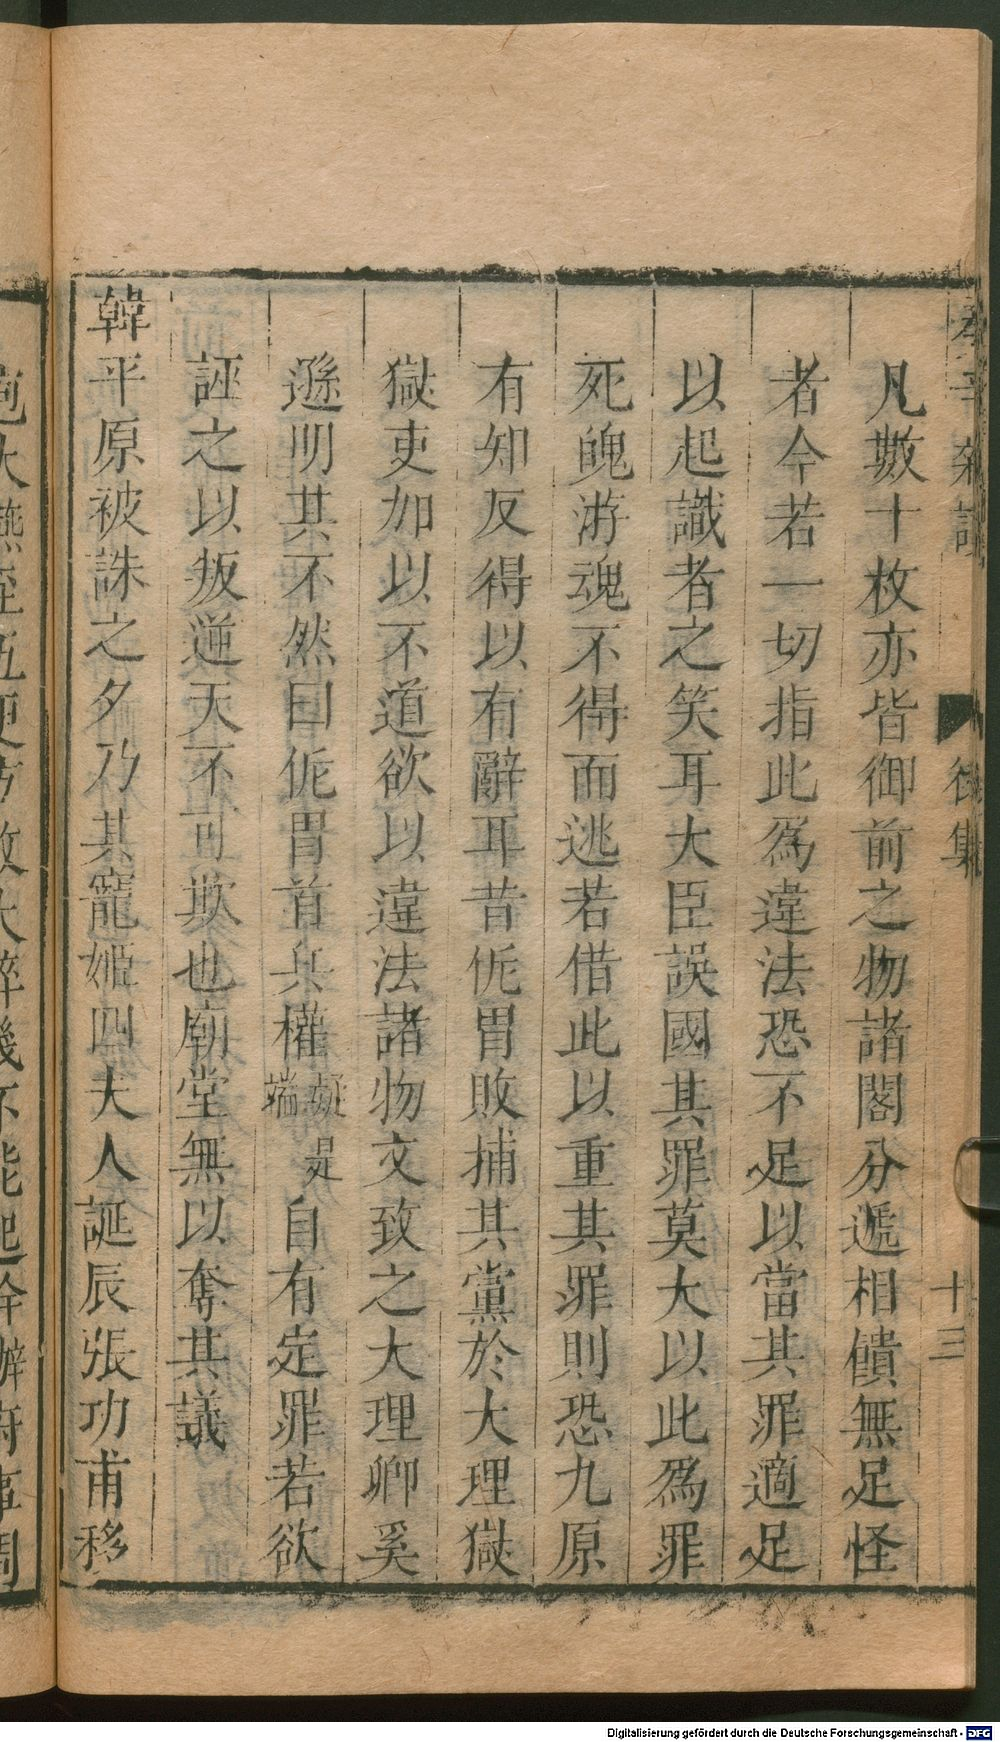 凡數十枚亦皆御前之物諸閣分遞相饋無足怪
者今若一切指此爲違法恐不足以當其罪適足
以起識者之笑耳大臣誤國其罪莫大以此爲罪
死魄游魂不得而逃若借此以重其罪則恐九原
有知反得以有辭耳昔侂胄敗捕其黨於大理獄
獄吏加以不道欲以違法諸物文致之大理卿奚
遜明其不然曰侂胄首兵權疑是端自有定罪若欲
誣之以叛逆天不可欺也廟堂無以奪其議
韓平原被誅之夕乃其寵姬四夫人誕辰張功甫移
後集
十三
Digitalisierung gefördert durch die Deutsche Forschungsgemeinschaft - DFG